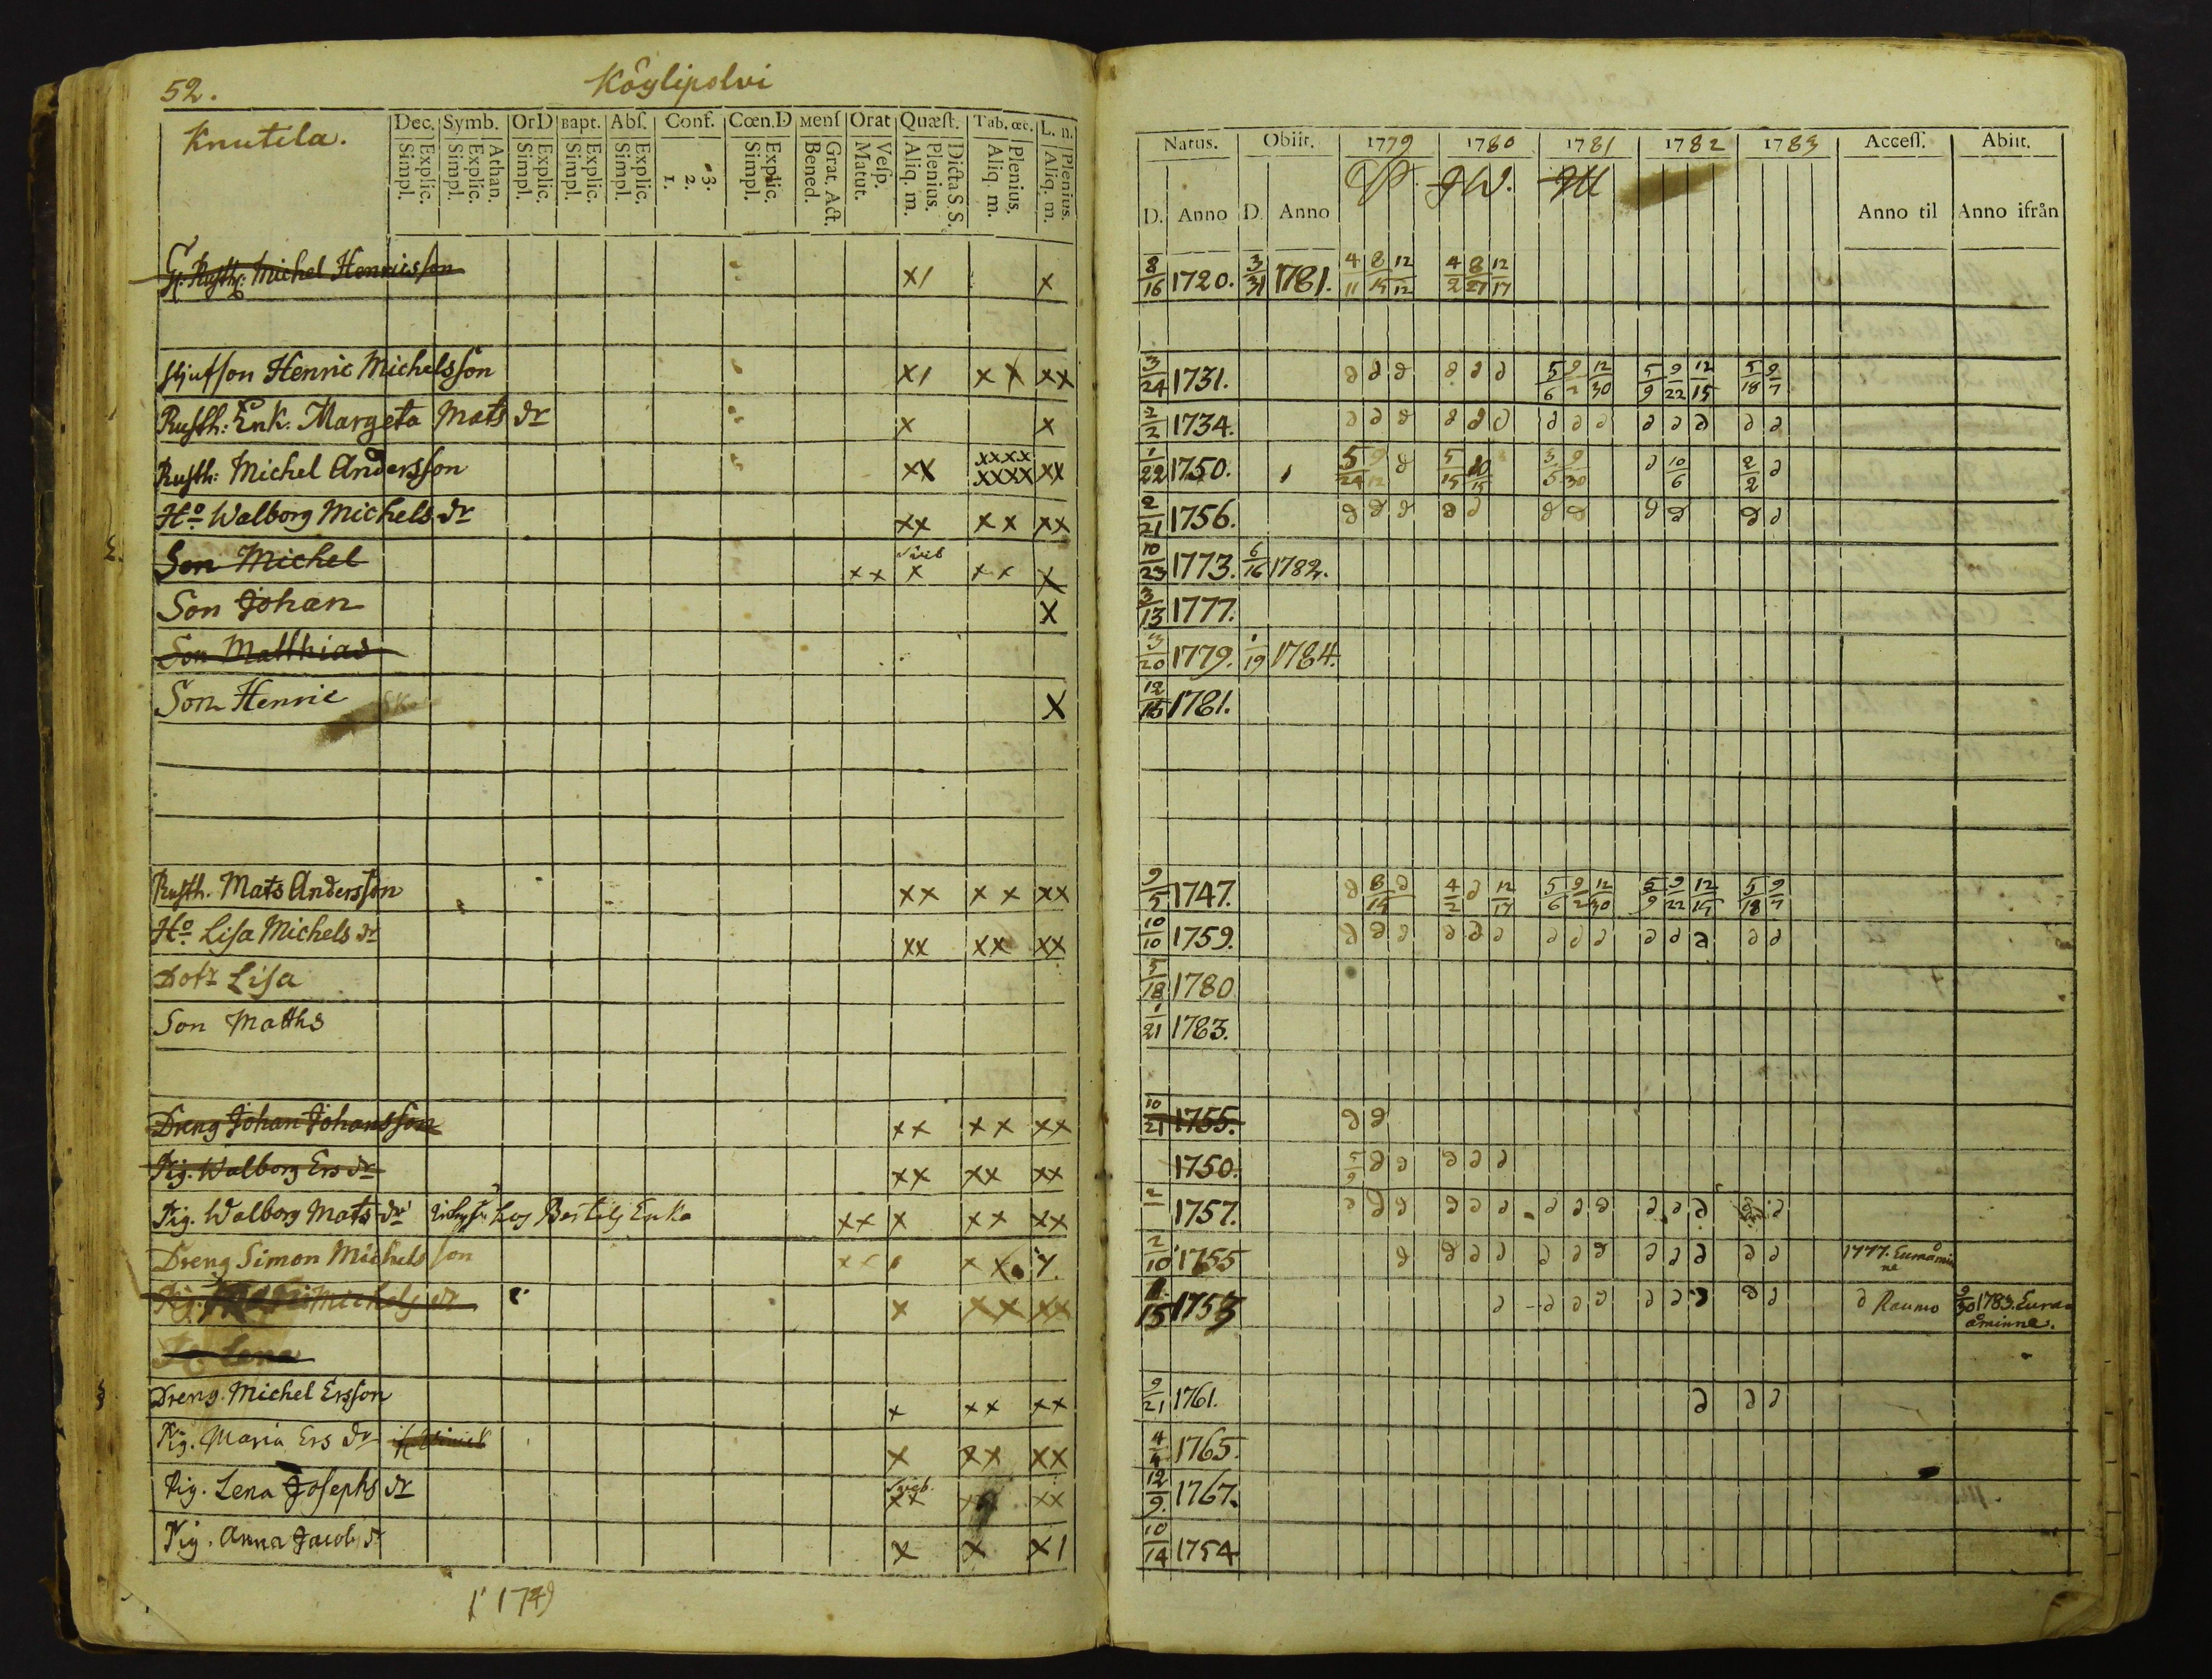 52.
Köylipolvi
Knutila.
Dec. Symb. OrD Bapt. Abs. Conf. Cœn.D Mens Orat Quæst. Tab. œc. L. n.
Explic. Simpl. Athan. Explic. Simpl. Explic. Simpl. Explic. Simpl. Explic. Simpl. 3. 2. 1. Explic. Simpl. Grat. Act. Bened. Vesp. Matut. Dicta S.S. Plenius. Aliq. m. Plenius. Aliq. m. Plenius. Aliq. m.
Natus. Obiit. 1779 1780 1781 1782 1783 Access. Abiit.
D. Anno D. Anno Anno til Anno ifrån
G. Rusth: Michel Hennicsson X1 X 8/16 1720. 3/31 1781. 4/11 8/15 12/12 4/2 8/27 12/17
Henric Michelsson X1 XX XX 3/24 1731. ∂ ∂ ∂ ∂ ∂ ∂ 5/6 9/2 12/30 5/9 9/22 12/15 5/18 9/7
Rusth: Enk. Margeta Mats dr X X 2/2 1734. ∂ ∂ ∂ ∂ ∂ ∂ ∂ ∂ ∂ ∂ ∂ ∂ ∂ ∂
Rusth: Michel Andersson XX XXXX XXXX XX 1/22 1750. 5/24 9/12 ∂ 5/15 10/15 3/5 9/30 ∂ 10/6 2/2 ∂
Ho Walborg Michels dr XX XX XX 2/21 1756. ∂ ∂ ∂ ∂ ∂ ∂ ∂ ∂ ∂ ∂ ∂
Son Michel XX Sveb X XX X 10/23 1773. 6/16 1782.
Son Johan X 3/13 1777.
Son Matthias 3/20 1779. 1/19 1784.
Son Henric X 12/15 1781.
Rusth. Mats Andersson XX XX XX 9/5 1747. ∂ 8/15 ∂ 4/2 ∂ 12/17 5/6 9/2 12/30 5/9 9/22 12/15 5/18 9/7
Ho Lisa Michels dr XX XX XX 10/10 1759. ∂ ∂ ∂ ∂ ∂ ∂ ∂ ∂ ∂ ∂ ∂ ∂ ∂ ∂
Dotr Lisa 5/18 1780
Son Matths 1/21 1783.
Dreng Johan Johansson XX XX XX 10/21 1755. ∂ ∂
Pig. Walborg Ers dr XX XX XX 1750. 5/9 ∂ ∂ ∂ ∂ ∂
Pig. Walborg Mats dr hos Bertils Enka XX X XX XX 2 1757. ∂ ∂ ∂ ∂ ∂ ∂ ∂ ∂ ∂ ∂ ∂ ∂ ∂
Dreng Simon Michelsson XX XX 2/10 1755 ∂ ∂ ∂ ∂ ∂ ∂ ∂ ∂ ∂ ∂ ∂ ∂ 1777. Euraåminne
Pig. Michels dr X XX XX 15 1753 ∂ ∂ ∂ ∂ ∂ ∂ ∂ ∂ ∂ ∂ Raumo 9/30 1783. Eura=
åminne.
Lena
Dreng. Michel Ersson X XX XX 9/21 1761. ∂ ∂ ∂
Pig. Maria Ers dr X XX XX 4/4 1765.
Pig. Lena Josephs dr Sveb. XX XX XX 12/9. 1767.
Pig. Anna Jacobs dr X X X1 10/14 1754